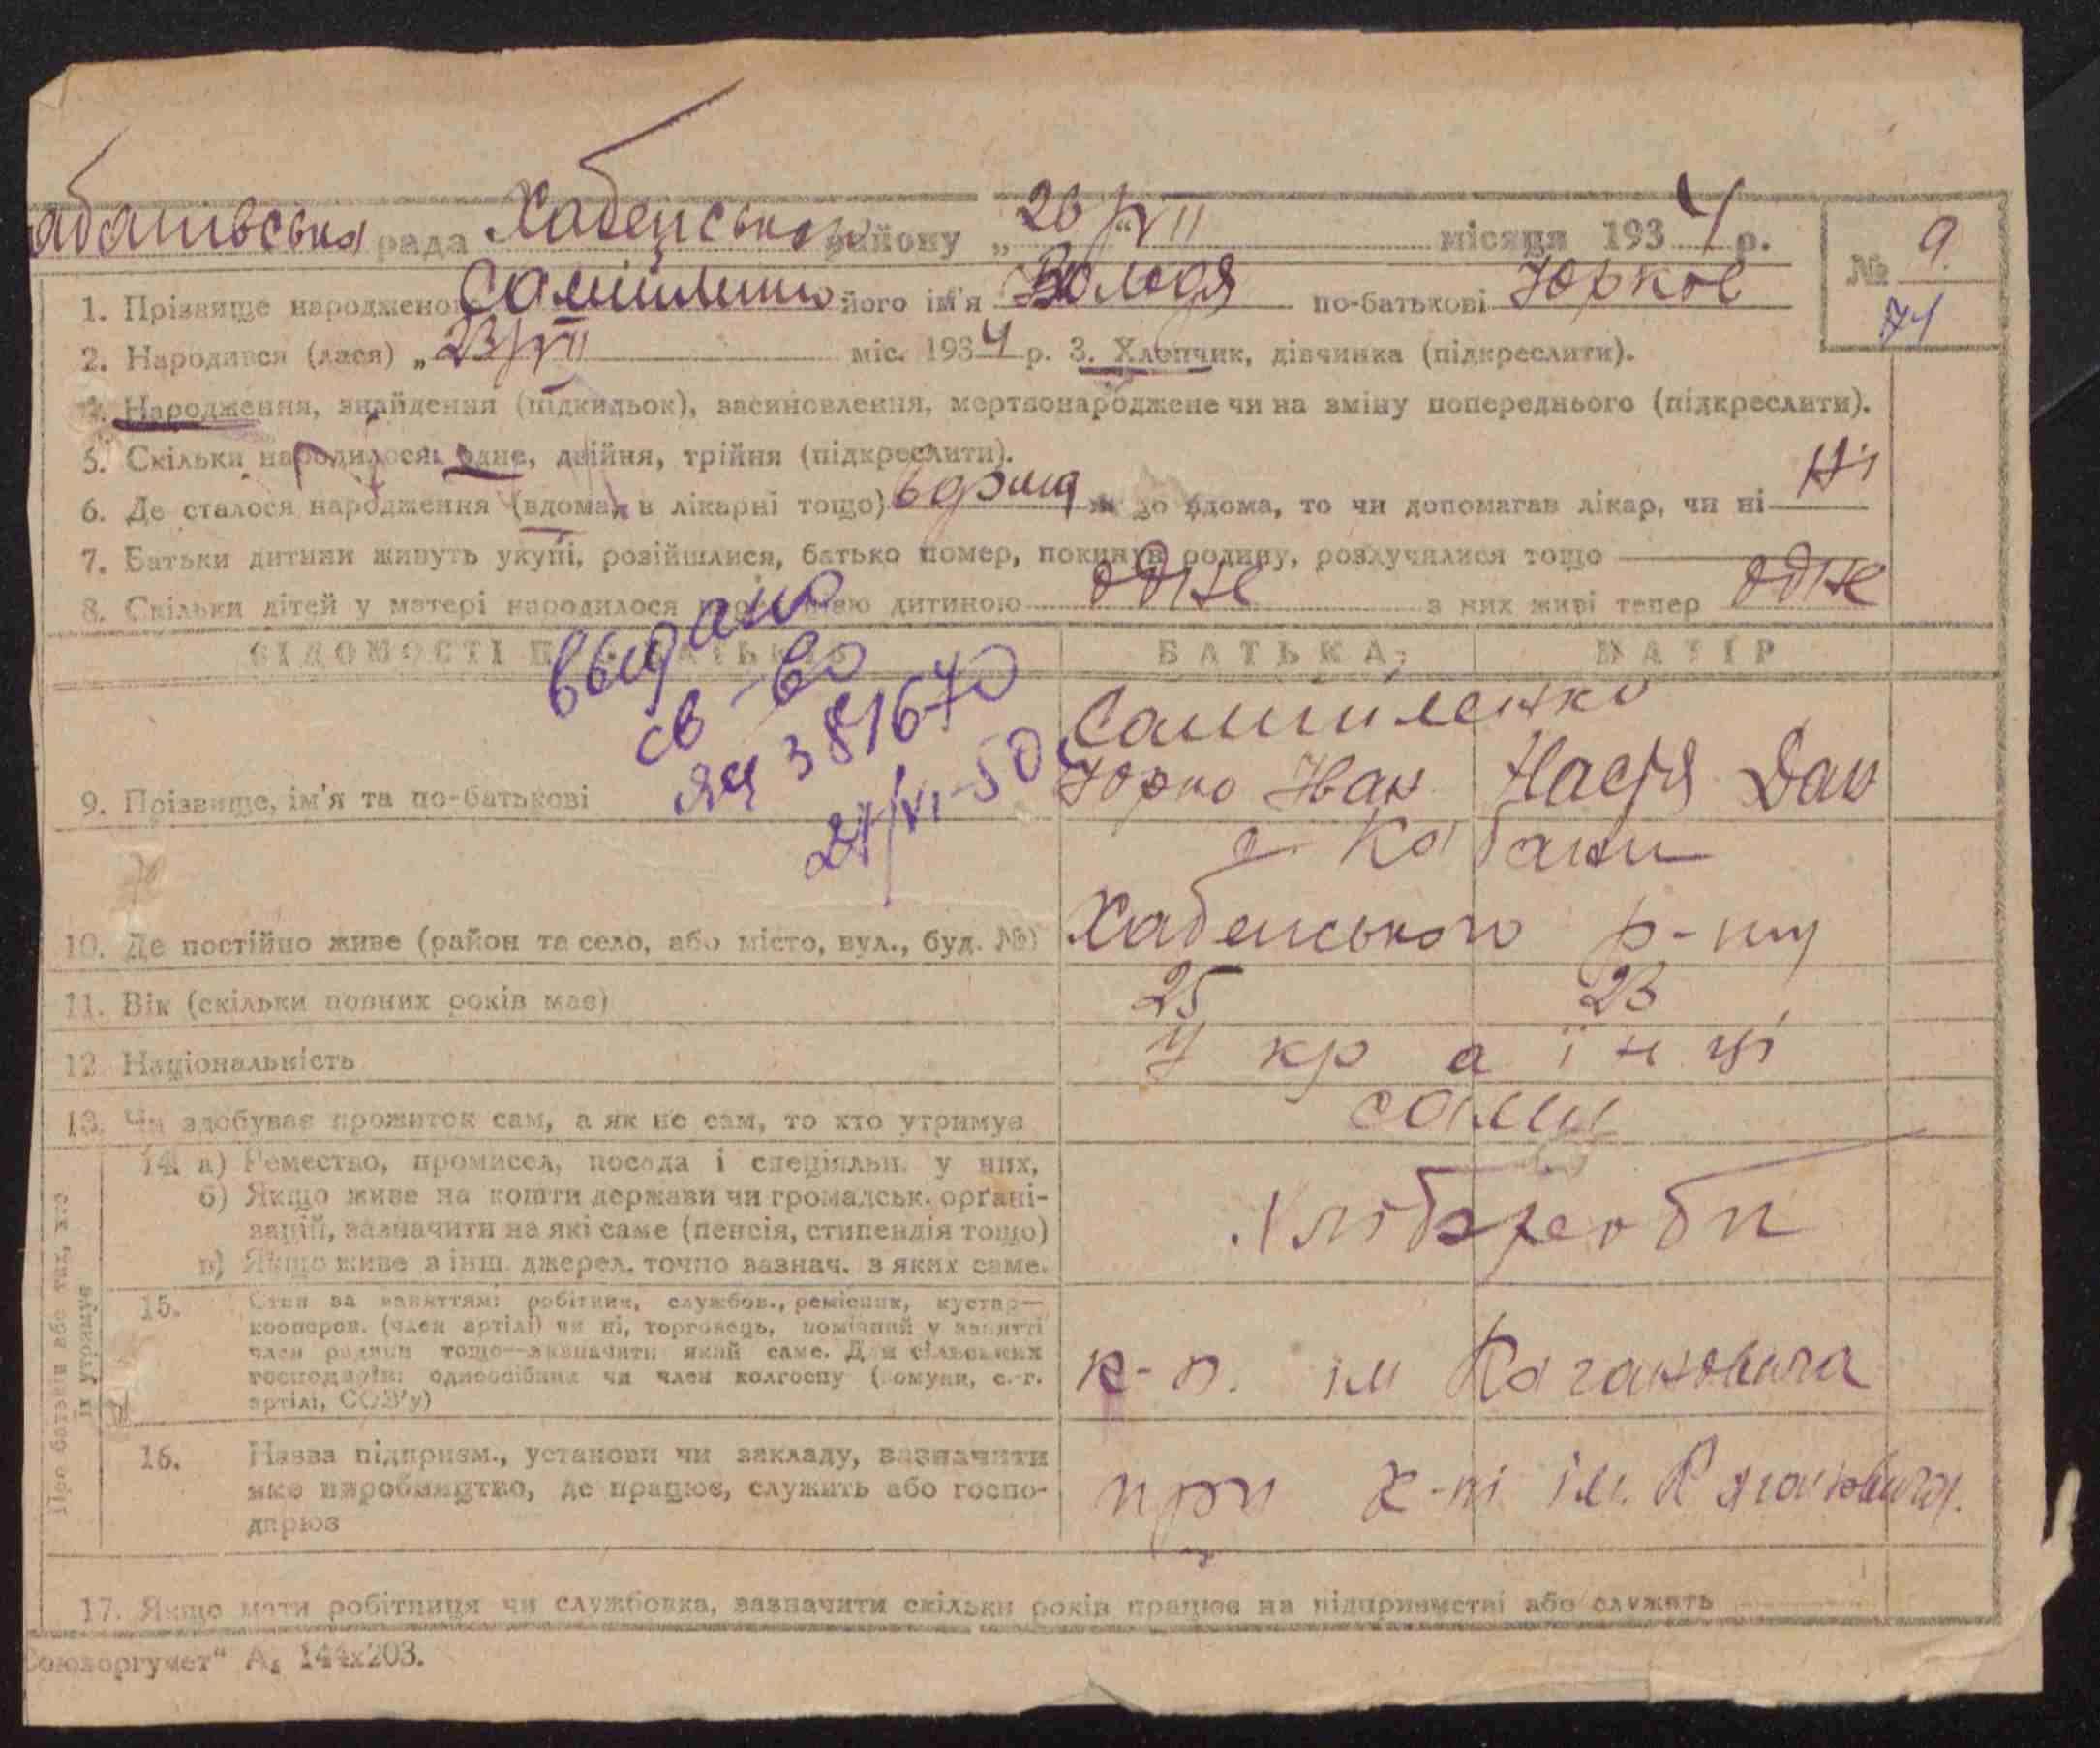 рада Хабенського району „ 26/VII місяця 1934 р.
№ 9
74
1. Прізвище народженого його ім'я Володя по-батькові Юрков
2. Народився (лася) „ 23/VII міс. 1934 р. 3. Хлопчик, дівчинка (підкреслити).
4. Народження, знайдення (підкидьок), засиновлення, мертвонароджене чи на зміну попереднього (підкреслити).
5. Скільки народилося: одне, двійня, трійня (підкреслити).
6. Де сталося народження (вдома, в лікарні тощо) вдома до вдома, то чи допомагав лікар, чи ні Ні
7. Батьки дитини живуть укупі, розійшлися, батько помер, покинув родину, розлучилися тощо
8. Скільки дітей у матері народилося дитиною одне з них живі тепер одне
ВІДОМОСТІ БАТЬКА МАТІР
выдано
св-во
ЯЧ 381670
27/VI-50
9. Прізвище, ім'я та по-батькові
Самійленко
Юрко Іван Настя Дан
с. Кабани
10. Де постійно живе (район та село, або місто, вул., буд. №) Хабенського р-ну
11. Вік (скільки повних років має) 25 23
12. Національність Українці
13. Чи здобуває прожиток сам, а як не сам, то хто утримує сами
Про батьків або тих, хто їх утримує
14. а) Ремество, промисел, посада і спеціяльн. у них,
б) Якщо живе на кошти держави чи громадськ. орґані-
зацій, зазначити на які саме (пенсія, стипендія тощо)
в) Якщо живе з інш. джерел. точно зазнач. з яких саме.
Хлібороби
15. Стан за заняттям: робітник, службов., ремісник, кустар—
кооперов. (член артілі) чи ні, торговець, помічний у занятті
член родини тощо—зазначити який саме. Для сільських
господарів: одноосібник чи член колгоспу (комуни, с.-г.
артілі, СОЗ'у)
к-п. ім Кагановича
16. Назва підприєм., установи чи закладу, зазначити
яке виробництво, де працює, служить або госпо-
дарює
при к-пі ім. Кагановича.
17. Якщо мати робітниця чи службовка, зазначити скільки років працює на підприємстві або служить
Союзоргучет" А₅ 144х203.